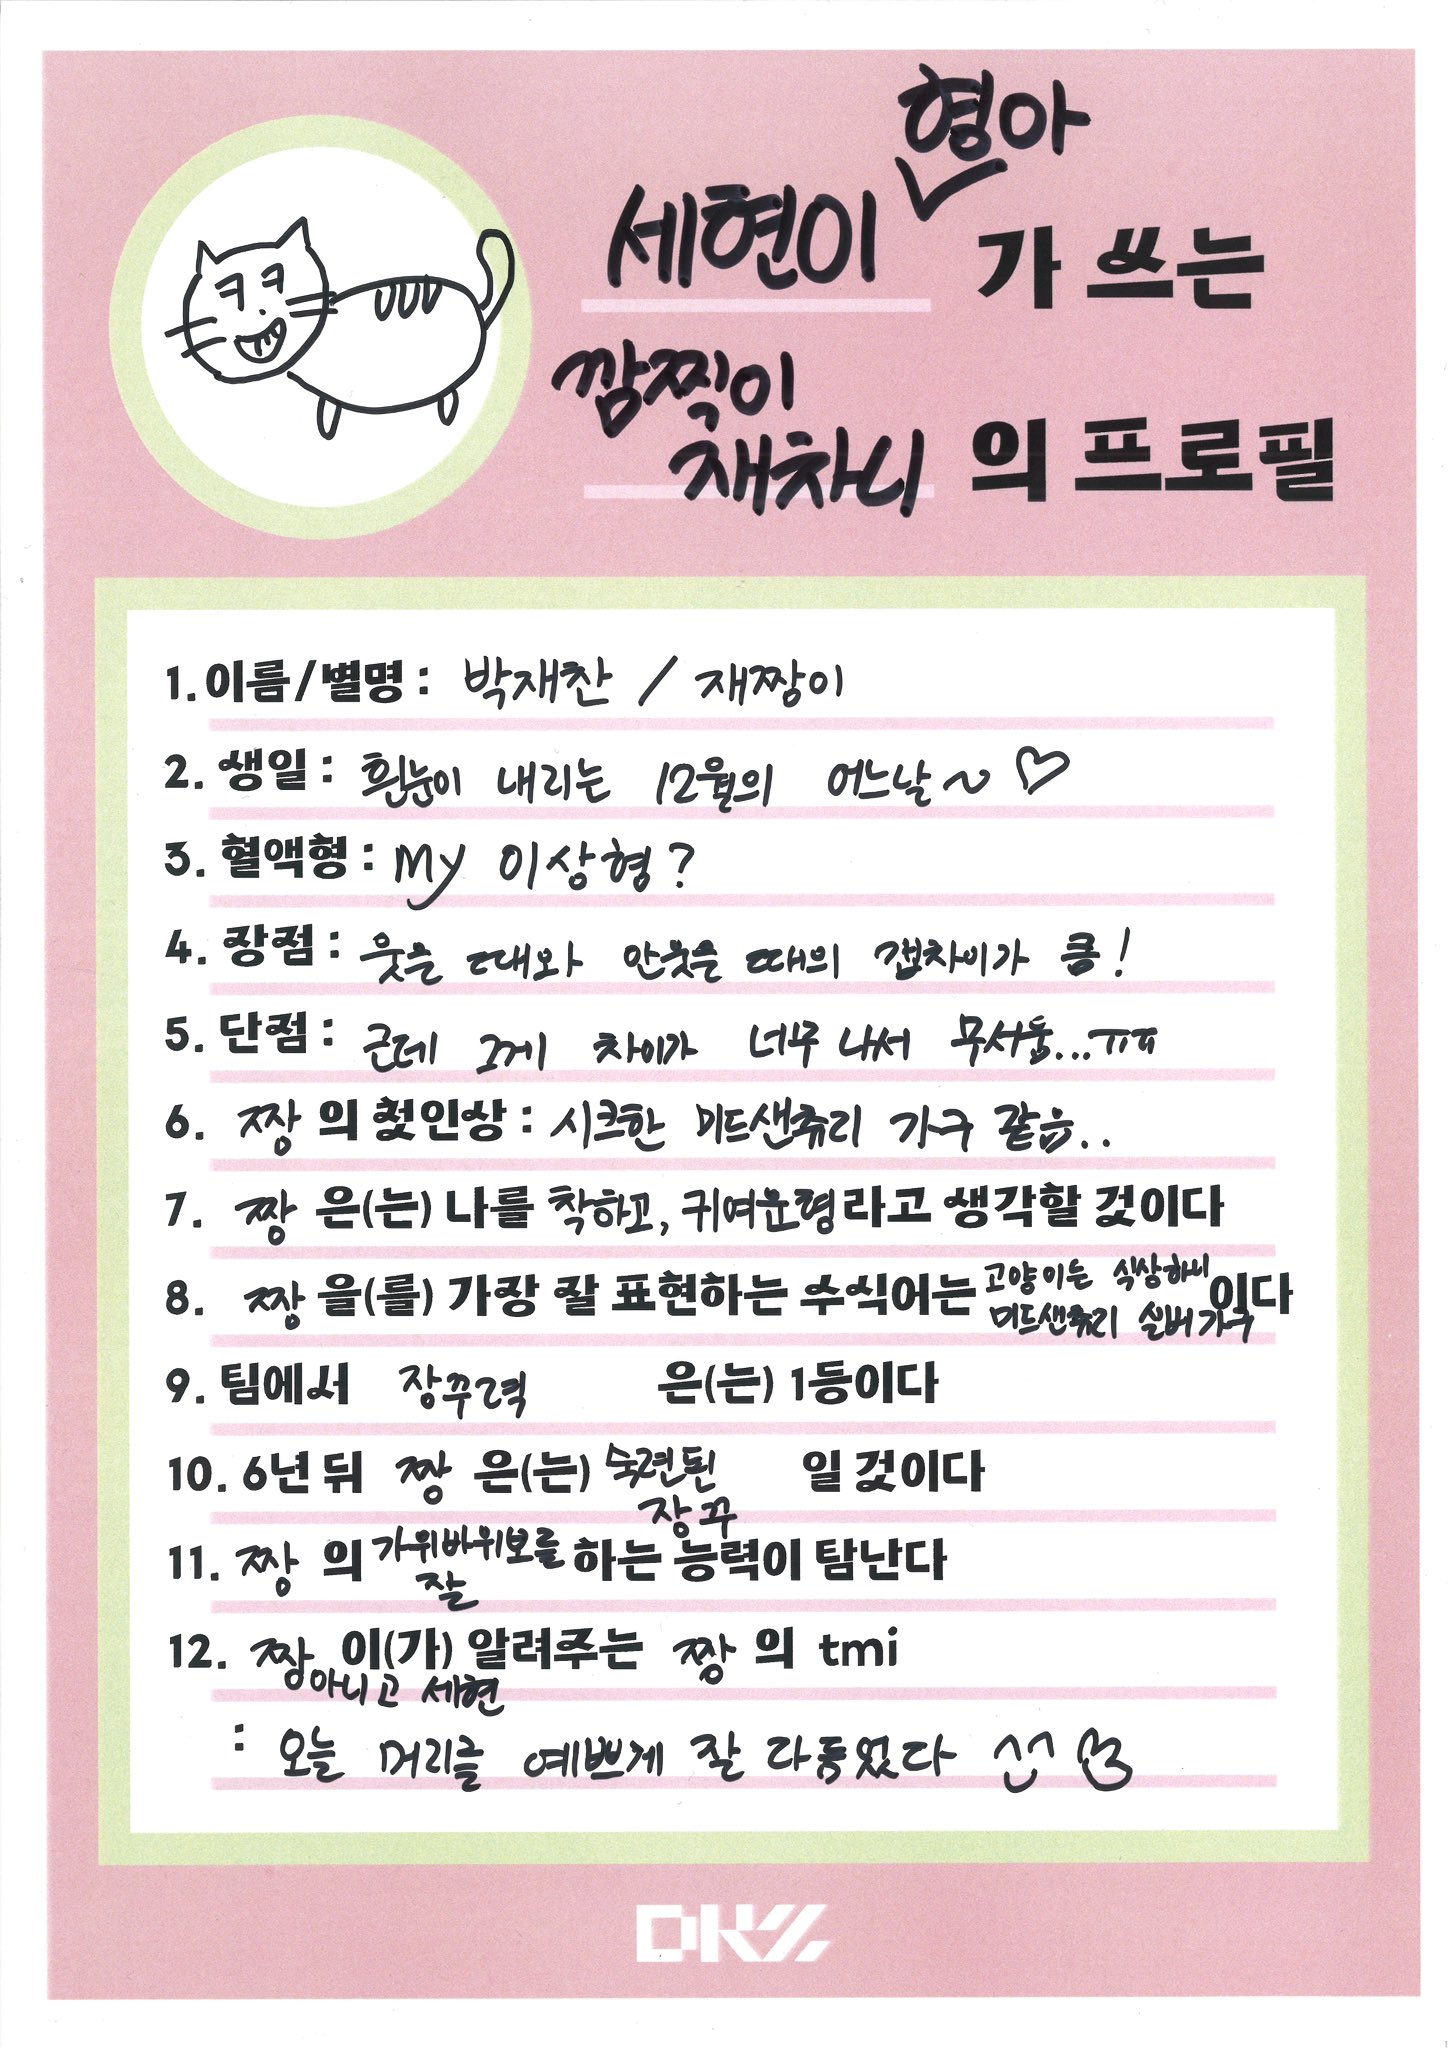 세현이 형아 가 쓰는
깜찍이
재차니 의 프로필
1. 이름/별명 : 박재찬 / 재짱이
2. 생일 : 흰눈이 내리는 12월의 어느날~ ♡
3. 혈액형 : My 이상형?
4. 장점 : 웃을 때와 안웃을 때의 갭차이가 큼!
5. 단점 : 근데 그게 차이가 너무 나서 무서움...ㅠㅠ
6. 짱 의 첫인상 : 시크한 미드샌츄리 가구 같음..
7. 짱 은(는) 나를 착하고, 귀여운형라고 생각할 것이다
8. 짱 을(를) 가장 잘 표현하는 수식어는 고양이는 식상하니 미드샌츄리 실버가구 이다
9. 팀에서 장꾸력 은(는) 1등이다
10. 6년 뒤 짱 은(는) 숙련된 장꾸 일 것이다
11. 짱 의 가위바위보를 잘 하는 능력이 탐난다
12. 짱 이(가) 알려주는 짱 의 tmi
아니고 세현
: 오늘 머리를 예쁘게 잘 다듬었다 ^^
DKZ